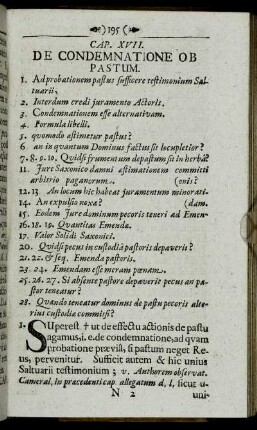 195
CAP. XVII.
DE CONDEMNATIONE OB
PASTUM.
1. Ad probationem pastus sufficere testimonium Sal-
tuarii,
2. Interdum credi juramento Actoris.
3. Condemnationem esse alternativam.
4. Formula libelli.
5. quomodo æstimetur pastus?
6 an in quantum Dominus factus sit locupletior?
7. 8. 9. 10. Quid si frumentum depastum sit in herbâ?
11. Jure Saxonico damni æstimationem committi
arbitrio paganorum. (onis?
12. 13 An locum hic habeat juramentum minorati-
14. An expulsio noxa? (dam.
15. Eodem Jure dominum pecoris teneri ad Emen-
16. 18. 19. Quantitas Emendæ.
17. Valor Solidi Saxonici.
20. Quid si pecus in custodiâ pastoris depaverit?
21. 22. & seq. Emenda pastoris.
23. 24. Emendam esse meram pœnam.
25. 26. 27. Si absente pastore depaverit pecus an pa-
stor teneatur?
28. Quando teneatur dominus de pastu pecoris alte-
rius custodiæ commissi?
1. SUperest † ut de effectu actionis de pastu
agamus, i. e. de condemnatione, ad qvam
probatione præviâ, si pastum neget Re-
us, pervenitur. Sufficit autem & hic unius
Saltuarii testimonium ; v. Authorem observat.
Cameral, in præcedenti cap. allegatum d. l, sicut u-
N 2 uni-